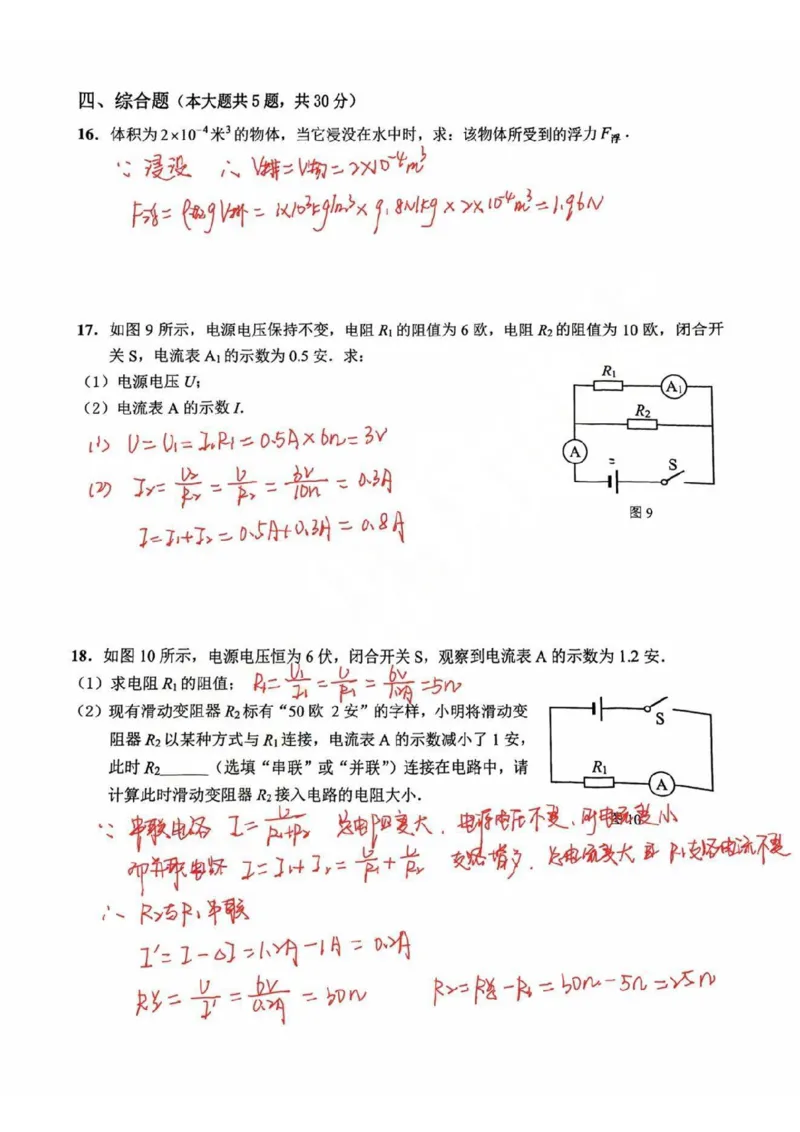 四、综合题（本大题共5题，共30分）
16．体积为2×10⁻⁴米³的物体，当它浸没在水中时，求：该物体所受到的浮力F浮．
∵浸没 ∴V排=V物=2×10⁻⁴m³
F浮=ρ液gV排=1×10³kg/m³×9.8N/kg×2×10⁻⁴m³=1.96N
17．如图9所示，电源电压保持不变，电阻R₁的阻值为6欧，电阻R₂的阻值为10欧，闭合开
关S，电流表A₁的示数为0.5安．求：
（1）电源电压U；
（2）电流表A的示数I．
R₁
A₁
R₂
A
S
图9
(1) U=U₁=I₁R₁=0.5A×6Ω=3V
(2) I₂=U₂/R₂=U/R₂=3V/10Ω=0.3A
I=I₁+I₂=0.5A+0.3A=0.8A
18．如图10所示，电源电压恒为6伏，闭合开关S，观察到电流表A的示数为1.2安．
（1）求电阻R₁的阻值；R₁=U₁/I₁=U/R₁=6V/1.2A=5Ω
（2）现有滑动变阻器R₂标有“50欧 2安”的字样，小明将滑动变
阻器R₂以某种方式与R₁连接，电流表A的示数减小了1安，
此时R₂______（选填“串联”或“并联”）连接在电路中，请
计算此时滑动变阻器R₂接入电路的电阻大小．
S
R₁
A
图10
∵串联电路 I=U/R₁+R₂ 总电阻变大．电源电压不变、所电流变小
并联电路 I=I₁+I₂=U/R₁+U/R₂ 支路增多．总电流变大 且R₁支路电流不变
∴R₂与R₁串联
I'=I-ΔI=1.2A-1A=0.2A
R总=U/I'=6V/0.2A=30Ω R₂=R总-R₁=30Ω-5Ω=25Ω